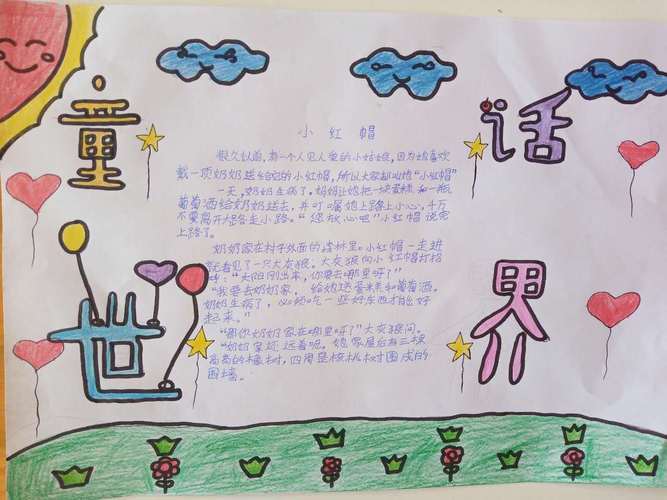 童话
世界
小红帽
很久以前,有一个人见人爱的小姑娘,因为她喜欢
戴一顶奶奶送给她的小红帽,所以大家都叫她“小红帽”
一天,奶奶生病了。妈妈让她把一块蛋糕和一瓶
葡萄酒给奶奶送去,并叮嘱她上路上小心,千万
不要离开大路走小路。“您放心吧”小红帽说完
上路了。
奶奶家在村子外面的森林里。小红帽一走进
就看见了一只大灰狼。大灰狼向小红帽打招
呼:“太阳刚出来,你要去哪里呀?”
“我要去奶奶家,给她送蛋糕和葡萄酒。
奶奶生病了,必须吃一些好东西才能好
起来。”
“那你奶奶家在哪里呀?”大灰狼问。
“奶奶家还远着呢,她家屋后有三棵
高高的橡树,四周是核桃树围成的
围墙。